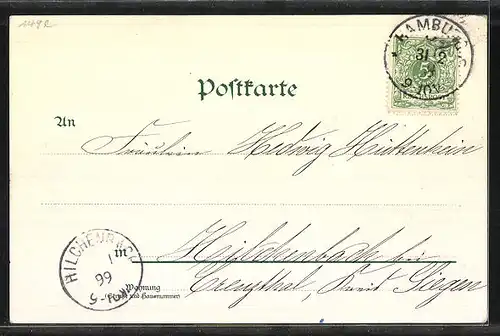 149R
HAMBURG
31 12
5
9-10V
Postkarte
An
Fräulein Hedwig Hüttenhein
Hilchenbach bei
in
Creuzthal, Kreis Siegen
HILCHENBACH
1 1
99
4-5
Wohnung
(Straße und Hausnummer)